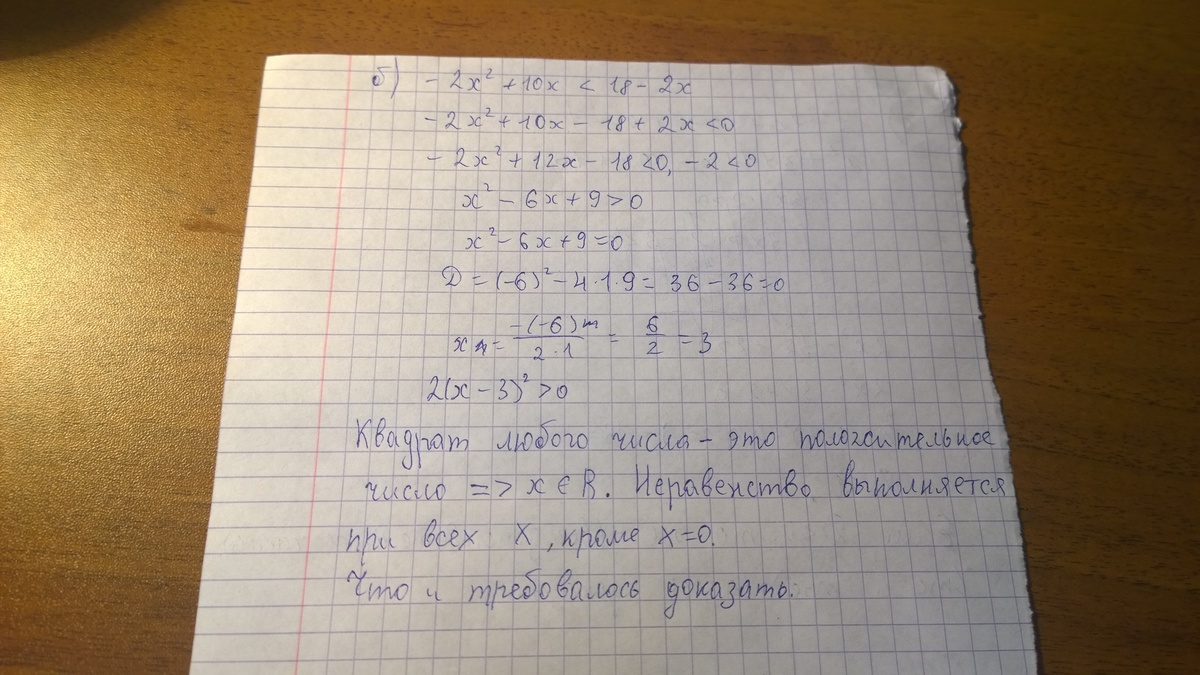 б) -2x² + 10x < 18 - 2x
-2x² + 10x - 18 + 2x < 0
-2x² + 12x - 18 < 0, -2 < 0
x² - 6x + 9 > 0
x² - 6x + 9 = 0
D = (-6)² - 4·1·9 = 36 - 36 = 0
x = -(-6)/2·1 = 6/2 = 3
2(x - 3)² > 0
Квадрат любого числа - это положительное
число => x ∈ R. Неравенство выполняется
при всех x, кроме x = 0.
Что и требовалось доказать.